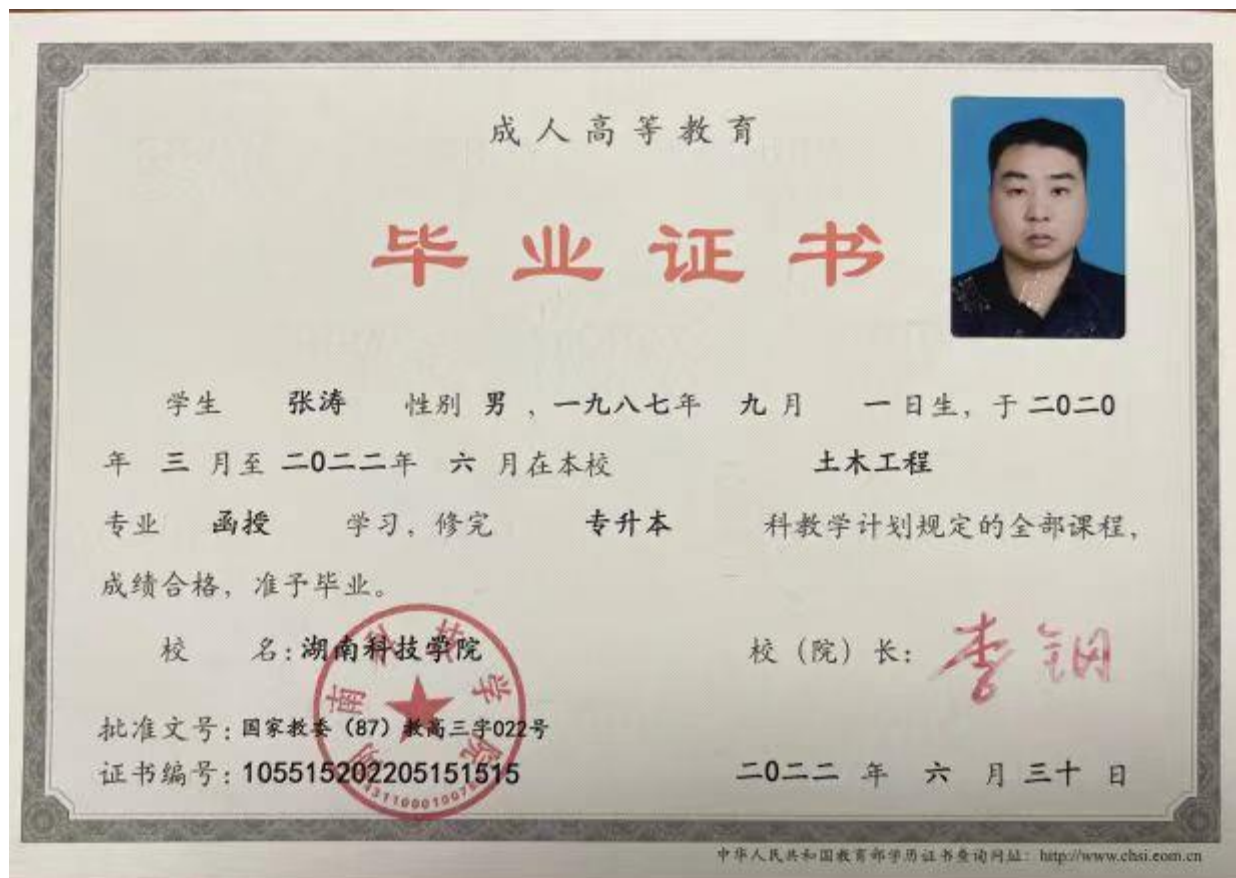 成人高等教育
毕业证书
学生 张涛 性别 男 , 一九八七年 九 月 一 日生, 于 二0二0
年 三 月至 二0二二年 六 月在本校 土木工程
专业 函授 学习, 修完 专升本 科教学计划规定的全部课程,
成绩合格, 准予毕业。
校 名: 湖南科技学院
校(院)长: 李钢
湖南科技学院
批准文号: 国家教委(87)教高三字022号
证书编号: 105515202205151515
二0二二 年 六 月 三十 日
中华人民共和国教育部学历证书查询网址: http://www.chsi.com.cn